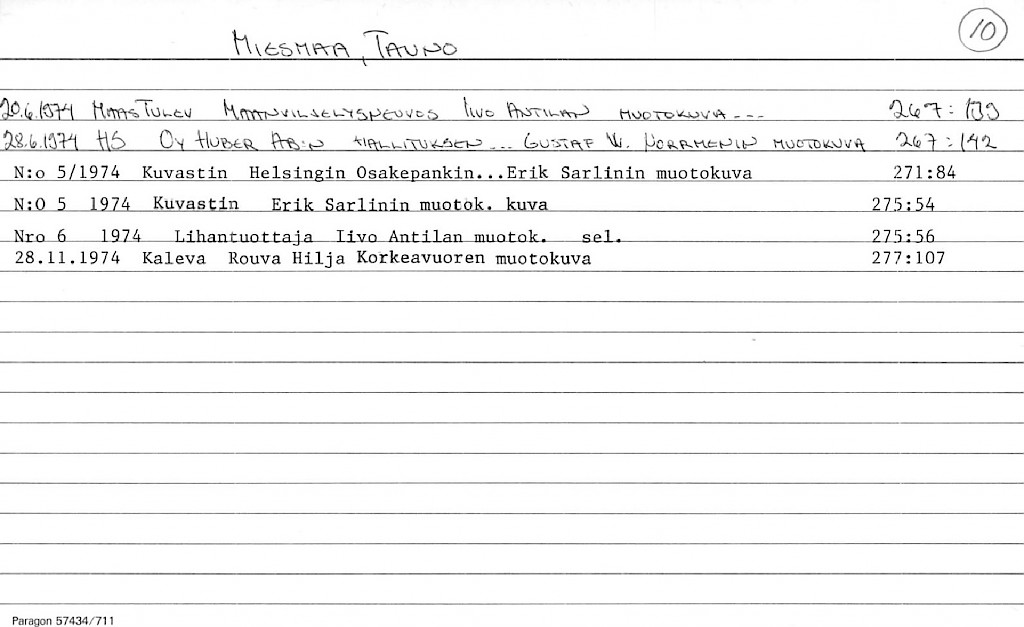 10
MIESMAA, TAUNO
20.6.1974 MAASTULEV MAANVILJELYSNEUVOS IIVO ANTILAN MUOTOKUVA --- 267:139
28.6.1974 HS OY HUBER AB:N HALLITUKSEN ... GUSTAF W. NORRMENIN MUOTOKUVA 267:142
N:o 5/1974 Kuvastin Helsingin Osakepankin...Erik Sarlinin muotokuva 271:84
N:O 5 1974 Kuvastin Erik Sarlinin muotok. kuva 275:54
Nro 6 1974 Lihantuottaja Iivo Antilan muotok. sel. 275:56
28.11.1974 Kaleva Rouva Hilja Korkeavuoren muotokuva 277:107
Paragon 57434/711